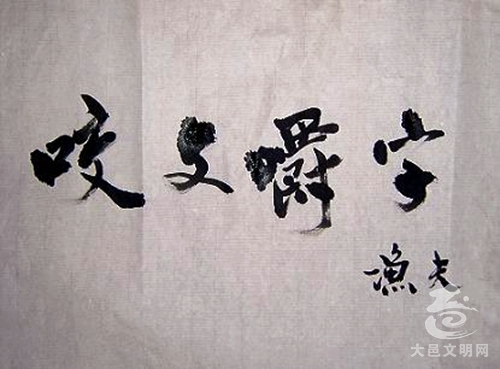 咬文嚼字
漁夫
大邑文明网